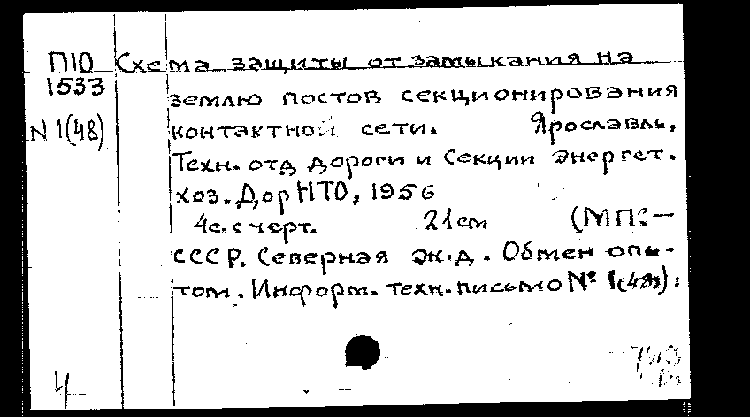 П10 Схема защиты от замыкания на
1533
землю постов секционирования
N 1(48) контактной сети. Ярославль,
Техн. отд дороги и Секции энергет.
хоз. Дор НТО, 1956
4с. с черт. 21см (МПС-
СССР. Северная ж.д. Обмен опы-
том. Информ. техн. письмо № 1(48).
4